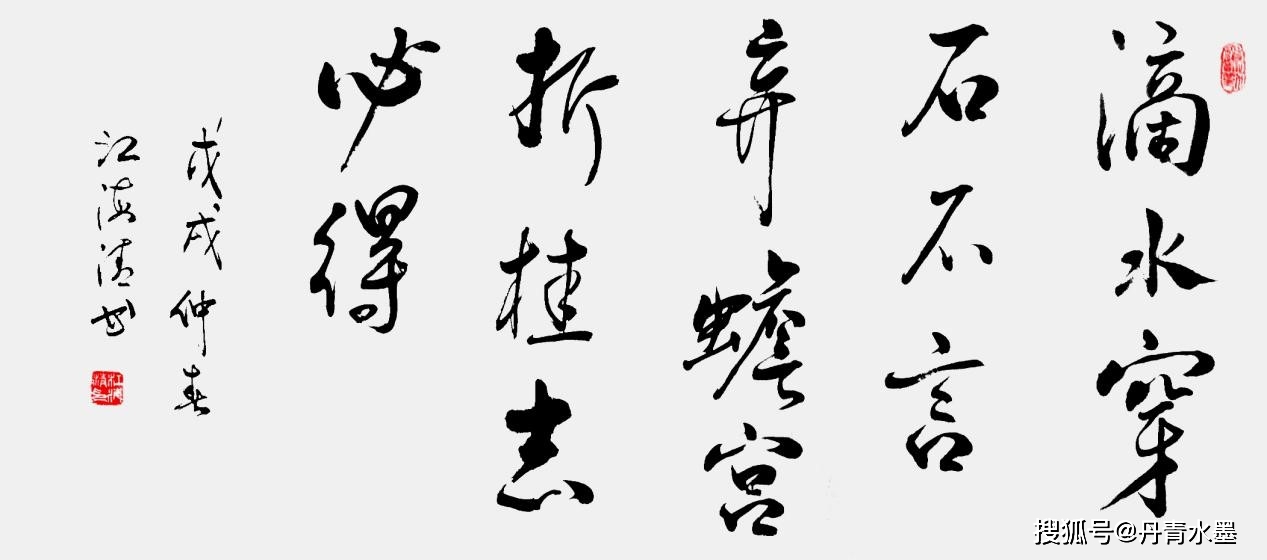 滴水穿
石不言
弃蟾宫
折桂志
必得
戊戌仲春
江海清书
搜狐号@丹青水墨